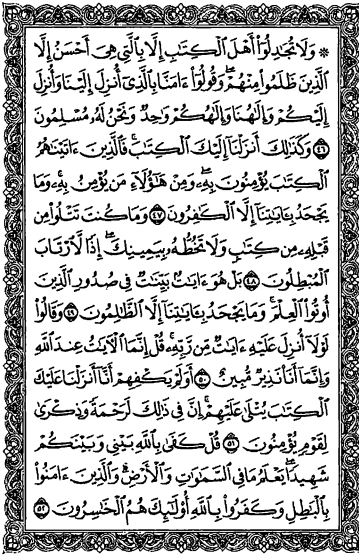 ۞ وَلَا تُجَٰدِلُوٓا۟ أَهْلَ ٱلْكِتَٰبِ إِلَّا بِٱلَّتِى هِىَ أَحْسَنُ إِلَّا
ٱلَّذِينَ ظَلَمُوا۟ مِنْهُمْ ۖ وَقُولُوٓا۟ ءَامَنَّا بِٱلَّذِىٓ أُنزِلَ إِلَيْنَا وَأُنزِلَ
إِلَيْكُمْ وَإِلَٰهُنَا وَإِلَٰهُكُمْ وَٰحِدٌ وَنَحْنُ لَهُۥ مُسْلِمُونَ
٤٦ وَكَذَٰلِكَ أَنزَلْنَآ إِلَيْكَ ٱلْكِتَٰبَ ۚ فَٱلَّذِينَ ءَاتَيْنَٰهُمُ
ٱلْكِتَٰبَ يُؤْمِنُونَ بِهِۦ ۖ وَمِنْ هَٰٓؤُلَآءِ مَن يُؤْمِنُ بِهِۦ ۚ وَمَا
يَجْحَدُ بِـَٔايَٰتِنَآ إِلَّا ٱلْكَٰفِرُونَ ٤٧ وَمَا كُنتَ تَتْلُوا۟ مِن
قَبْلِهِۦ مِن كِتَٰبٍ وَلَا تَخُطُّهُۥ بِيَمِينِكَ ۖ إِذًا لَّٱرْتَابَ
ٱلْمُبْطِلُونَ ٤٨ بَلْ هُوَ ءَايَٰتٌۢ بَيِّنَٰتٌ فِى صُدُورِ ٱلَّذِينَ
أُوتُوا۟ ٱلْعِلْمَ ۚ وَمَا يَجْحَدُ بِـَٔايَٰتِنَآ إِلَّا ٱلظَّٰلِمُونَ ٤٩ وَقَالُوا۟
لَوْلَآ أُنزِلَ عَلَيْهِ ءَايَٰتٌ مِّن رَّبِّهِۦ ۖ قُلْ إِنَّمَا ٱلْـَٔايَٰتُ عِندَ ٱللَّهِ
وَإِنَّمَآ أَنَا۠ نَذِيرٌ مُّبِينٌ ٥٠ أَوَلَمْ يَكْفِهِمْ أَنَّآ أَنزَلْنَا عَلَيْكَ
ٱلْكِتَٰبَ يُتْلَىٰ عَلَيْهِمْ ۚ إِنَّ فِى ذَٰلِكَ لَرَحْمَةً وَذِكْرَىٰ
لِقَوْمٍ يُؤْمِنُونَ ٥١ قُلْ كَفَىٰ بِٱللَّهِ بَيْنِى وَبَيْنَكُمْ
شَهِيدًا ۖ يَعْلَمُ مَا فِى ٱلسَّمَٰوَٰتِ وَٱلْأَرْضِ ۗ وَٱلَّذِينَ ءَامَنُوا۟
بِٱلْبَٰطِلِ وَكَفَرُوا۟ بِٱللَّهِ أُو۟لَٰٓئِكَ هُمُ ٱلْخَٰسِرُونَ ٥٢